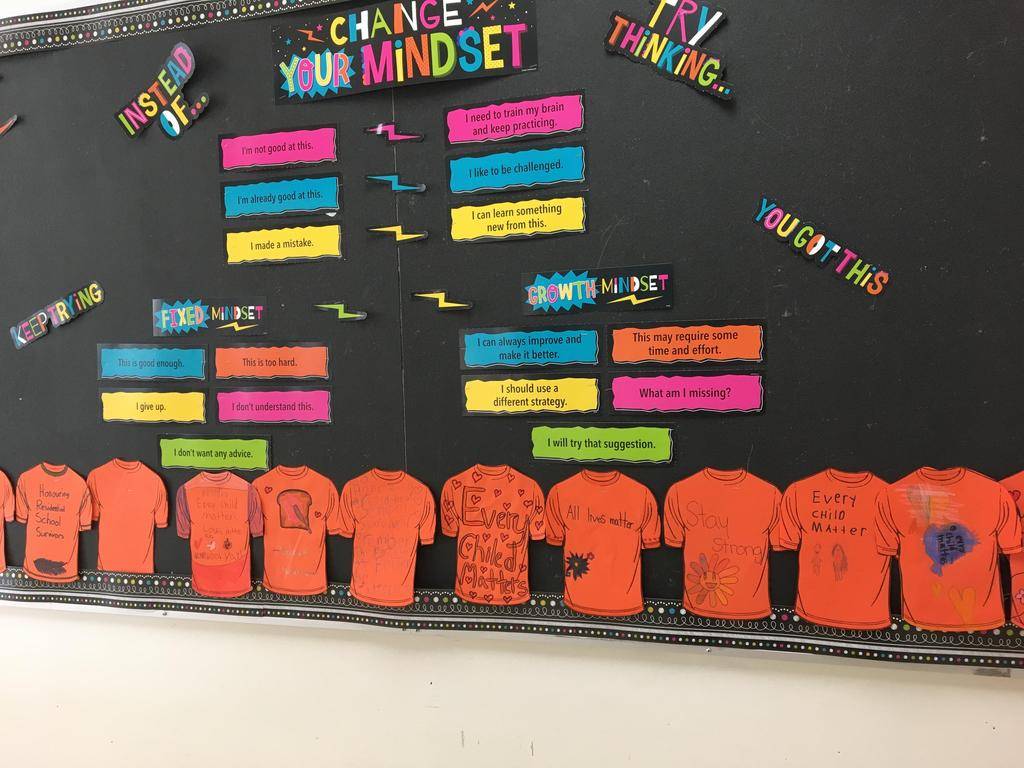 CHANGE
YOUR MINDSET
INSTEAD
OF...
TRY
THINKING...
I'm not good at this.
I need to train my brain
and keep practicing.
I'm already good at this.
I like to be challenged.
I made a mistake.
I can learn something
new from this.
YOU GOT THIS
KEEP TRYING
FIXED MINDSET
GROWTH MINDSET
This is good enough.
This is too hard.
I give up.
I don't understand this.
I don't want any advice.
I can always improve and
make it better.
This may require some
time and effort.
I should use a
different strategy.
What am I missing?
I will try that suggestion.
Honouring
Residential
School
Survivors
Every child
matter
Every
Child
Matters
All lives matter
Stay
Strong
Every
CHILD
MAtter
every
child
matter